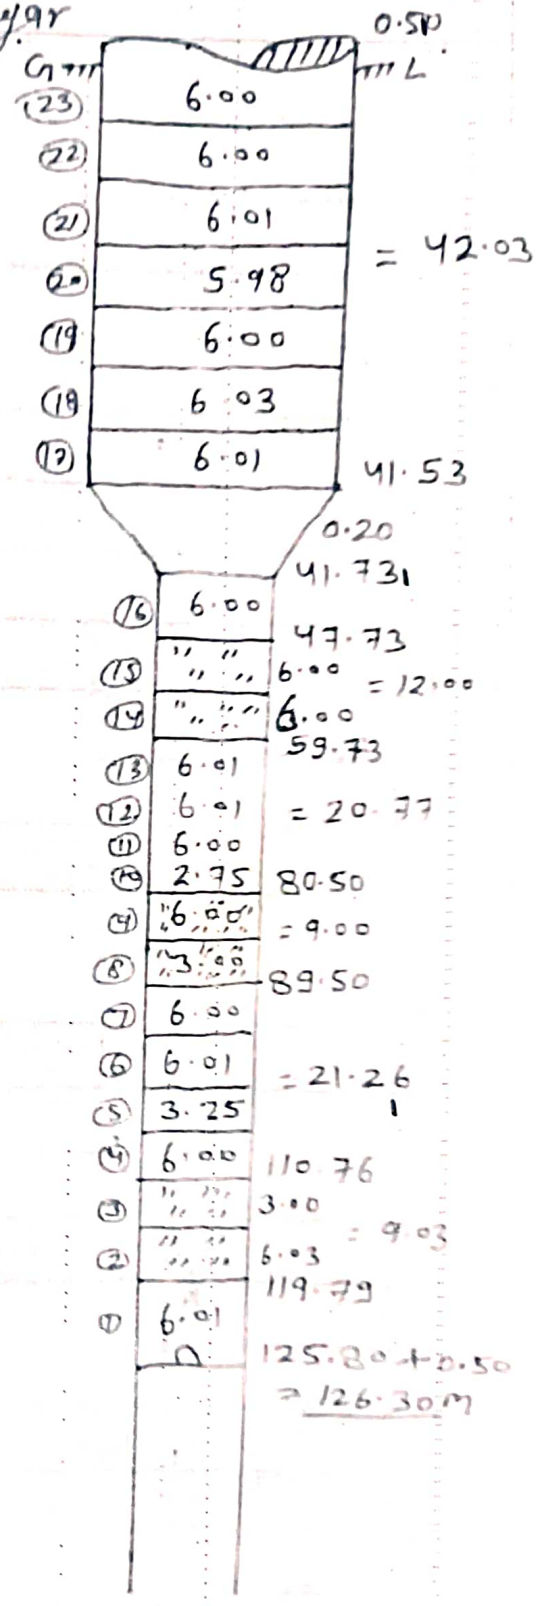 0.50
G L
(23) 6.00
(22) 6.00
(21) 6.01
= 42.03
(20) 5.98
(19) 6.00
(18) 6.03
(17) 6.01
41.53
0.20
41.731
(16) 6.00
47.73
(15) " " 6.00
= 12.00
(14) " " 6.00
59.73
(13) 6.01
(12) 6.01 = 20.77
(11) 6.00
(10) 2.75 80.50
(9) 6.00
= 9.00
(8) 3.00
89.50
(7) 6.00
(6) 6.01
= 21.26
(5) 3.25 1
(4) 6.00 110.76
(3) " " 3.00
= 9.03
(2) " " 6.03
119.79
(1) 6.01
125.80 + 0.50
= 126.30m